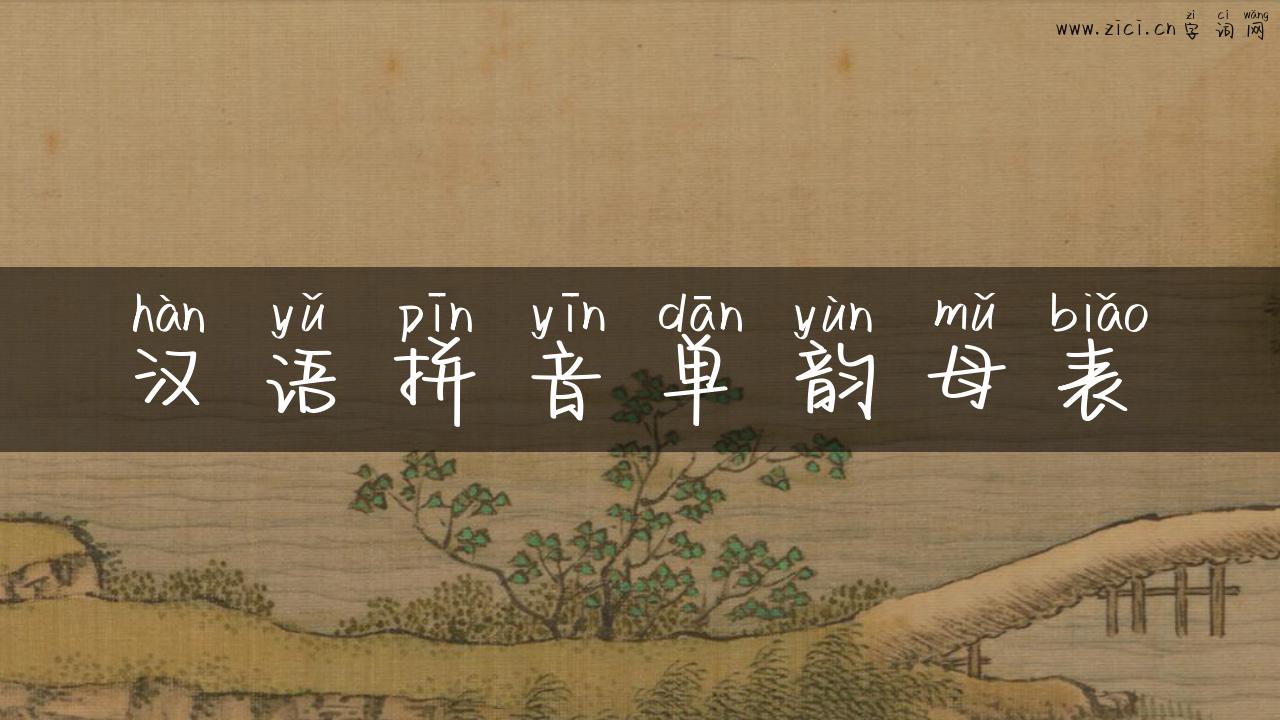 zì cí wǎng
www.zici.cn 字 词 网
hàn yǔ pīn yīn dān yùn mǔ biǎo
汉 语 拼 音 单 韵 母 表